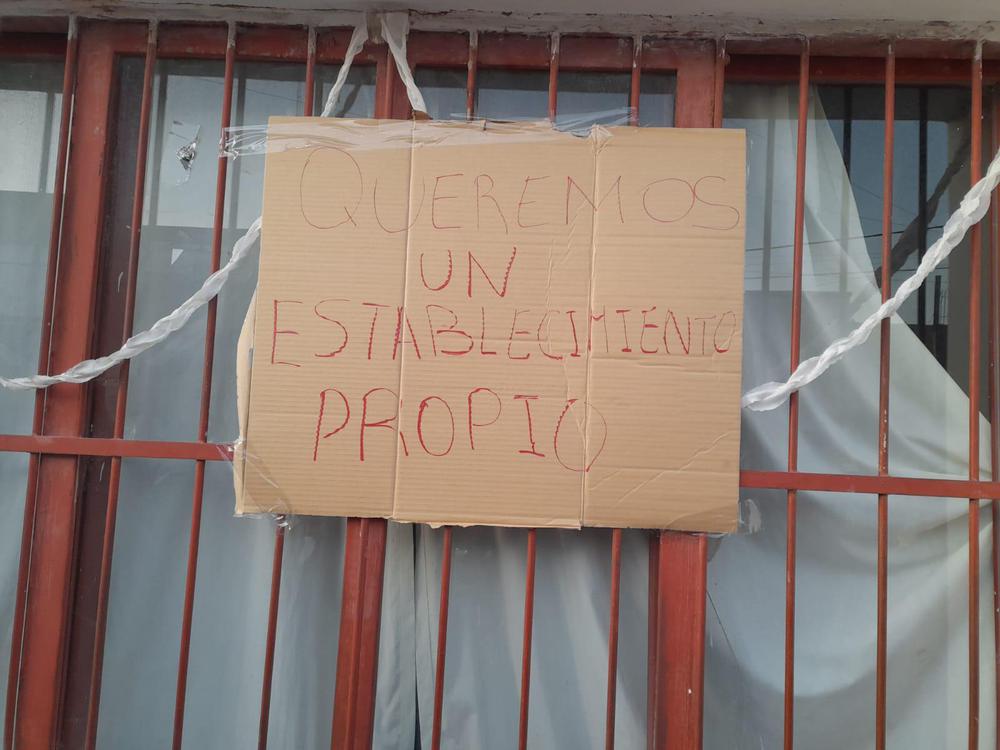 QUEREMOS
UN
ESTABLECIMIENTO
PROPIO